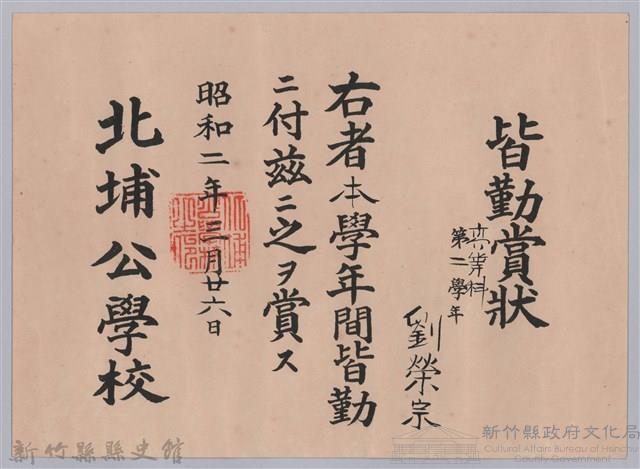 皆勤賞狀
高等科
第二學年
劉榮宗
右者本學年間皆勤
ニ付茲ニ之ヲ賞ス
昭和二年三月廿六日
北埔公學校
新竹縣縣史館
新竹縣政府文化局
Cultural Affairs Bureau of Hsinchu
County Government